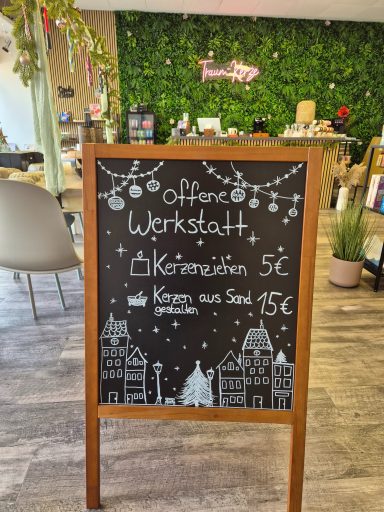 Traum Kerze
offene
Werkstatt
Kerzenziehen 5€
Kerzen aus Sand 15€
gestalten